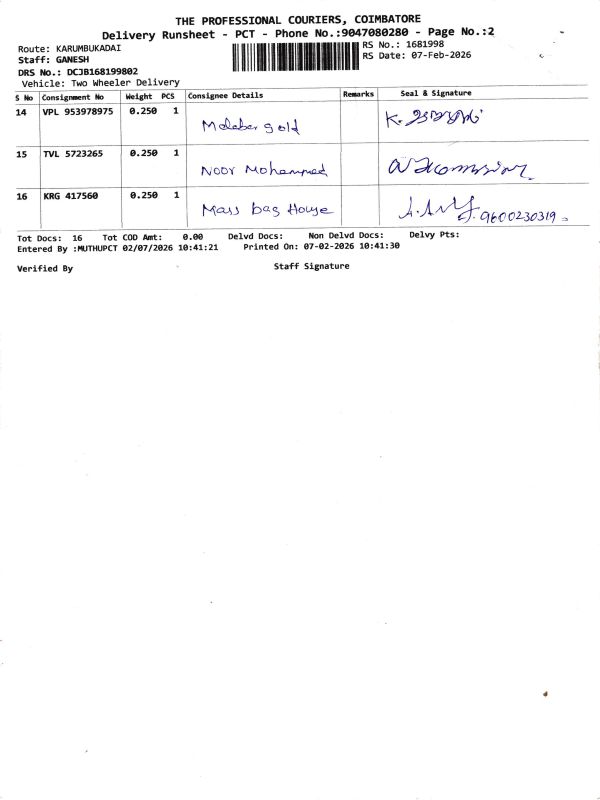 THE PROFESSIONAL COURIERS, COIMBATORE
Delivery Runsheet - PCT - Phone No.:9047080280 - Page No.:2
Route: KARUMBUKADAI
RS No.: 1681998
Staff: GANESH
RS Date: 07-Feb-2026
DRS No.: DCJB168199802
Vehicle: Two Wheeler Delivery
S No Consignment No Weight PCS Consignee Details Remarks Seal & Signature
14 VPL 953978975 0.250 1 Malabar gold K.
15 TVL 5723265 0.250 1 Noor Mohammed
16 KRG 417560 0.250 1 Mass bag House 9600230319
Tot Docs: 16 Tot COD Amt: 0.00 Delvd Docs: Non Delvd Docs: Delvy Pts:
Entered By :MUTHUPCT 02/07/2026 10:41:21 Printed On: 07-02-2026 10:41:30
Verified By Staff Signature